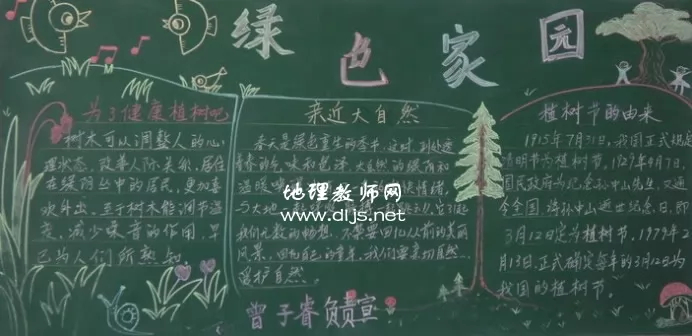 绿色家园
为了健康植树吧
树木可以调整人的心
理状态，改善人际关系，居住
在绿的丛中的居民，更加喜
欢外出。至于树木能调节温
度，减少噪音的作用，早
已为人们所熟知。
亲近大自然
春天是绿色重生的季节，这时，到处透
大自然的绿荫和
情绪，
与大地
我们无数的畅想，不禁要回忆从前的美丽
风景，回忆自己的童年，我们要亲切自然，
爱护自然。
植树节的由来
1915年7月31日，我国正式规定
清明节为植树节。1929年4月7日，
国民政府为纪念孙中山先生，又通
令全国，将孙中山逝世纪念日，即
3月12日定为植树节，1979年2
月13日正式确定每年的3月12日为
我国的植树节。
地理教师网
www.dljs.net
曾子睿负责宣